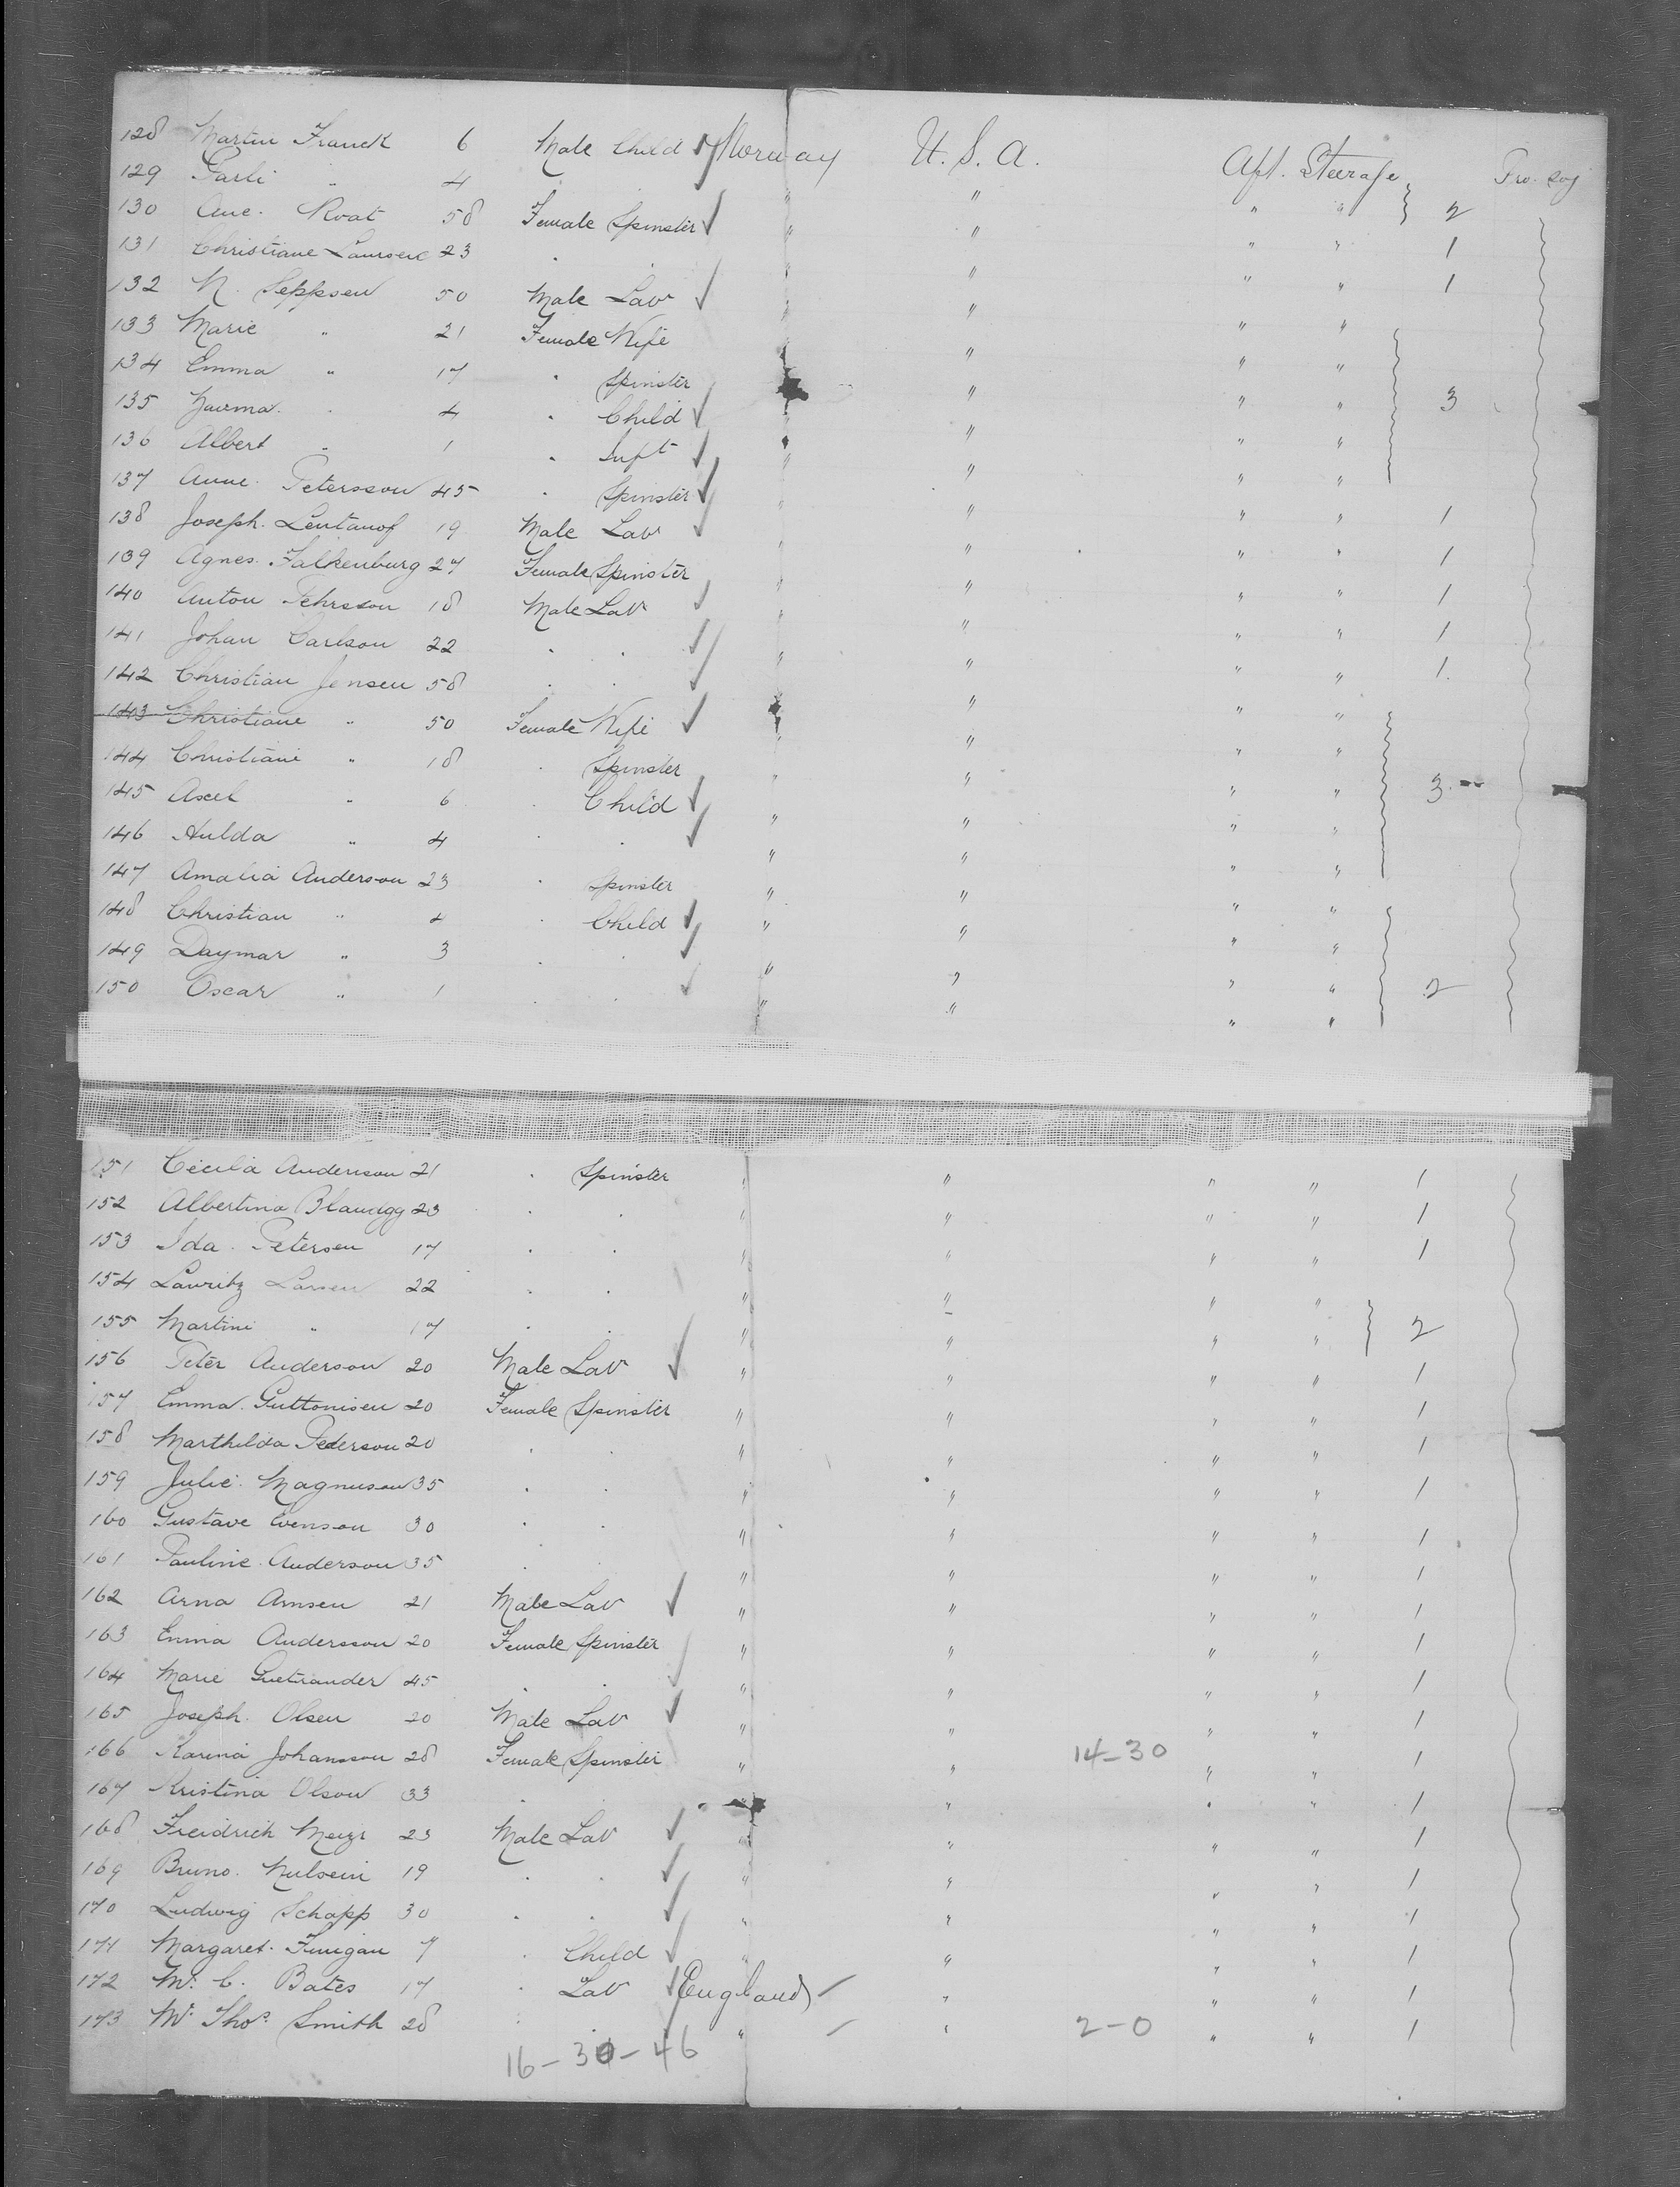 128 Martin Franck 6 Male Child Norway U. S. A. Aft. Steerage Pro. Soj
129 Parli " 4 " " " " 2
130 Ane. Roat 58 Female Spinster " " " " 1
131 Christiane Laursen 23 . . " " " " 1
132 N. Seppsen 50 Male Lab " " " "
133 Marie " 21 Female Wife " " " "
134 Emma " 17 " Spinster " " " " 3
135 " 4 " Child " " " "
136 Albert " 1 " Inft " " " "
137 Anne. Petersson 45 " Spinster " " " " 1
138 Joseph. Lentanof 19 Male Lab " " " " 1
139 Agnes. Falkenburg 27 Female Spinster " " " " 1
140 Anton Pehrsson 18 Male Lab " " " " 1
141 Johan Carlson 22 . . " " " " 1
142 Christian Jensen 58 . . " " " "
143 Christiane " 50 Female Wife " " " "
144 Christiani " 18 " Spinster " " " " 3
145 Axel " 6 " Child " " " "
146 Hulda " 4 . . " " " "
147 Amalia Anderson 23 " Spinster " " " "
148 Christian " 4 " Child " " " "
149 Daymar " 3 . . " " " " 2
150 Oscar " 1 . . " " " "
151 Cecilia Anderson 21 " Spinster " " " " 1
152 Albertina 23 . . " " " " 1
153 Ida. Petersen 17 . . " " " " 1
154 Lauritz Larsen 22 . . " " " "
155 Martini " 17 . . " " " " 2
156 Peter Anderson 20 Male Lab " " " " 1
157 Emma. Guttonisen 20 Female Spinster " " " " 1
158 Marthilda Pederson 20 . . " " " " 1
159 Julie. Magnuson 35 . . " " " " 1
160 Gustave Evenson 30 . . " " " " 1
161 Pauline. Anderson 35 . . " " " " 1
162 Arna Arnsen 21 Male Lab " " " " 1
163 Emma Andersson 20 Female Spinster " " " " 1
164 Marie 45 . . " " " " 1
165 Joseph. Olsen 20 Male Lab " " " " 1
166 Karina Johansson 28 Female Spinster " " 14-30 " " 1
167 Kristina Olson 33 . . " " " " 1
168 Freidrich Meyr 23 Male Lab " " " " 1
169 Bruno. 19 . . " " " " 1
170 Ludwig Schapp 30 . . " " " " 1
171 Margaret. Finigan 7 " Child " " " " 1
172 Mr. C. Bates 17 " Lab England " " " 1
173 Mr. Thos. Smith 28 . . " " 2-0 " " 1
16-30-46